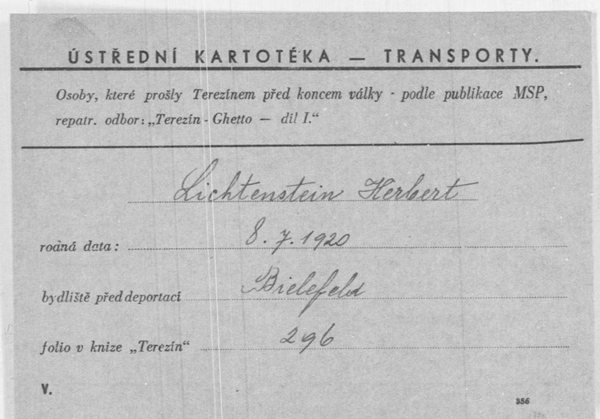 ÚSTŘEDNÍ KARTOTÉKA — TRANSPORTY.
Osoby, které prošly Terezínem před koncem války - podle publikace MSP,
repatr. odbor: „Terezín - Ghetto — díl I."
Lichtenstein Herbert
rodná data: 8. 7. 1920
bydliště před deportací Bielefeld
folio v knize „Terezín" 296
V.
356